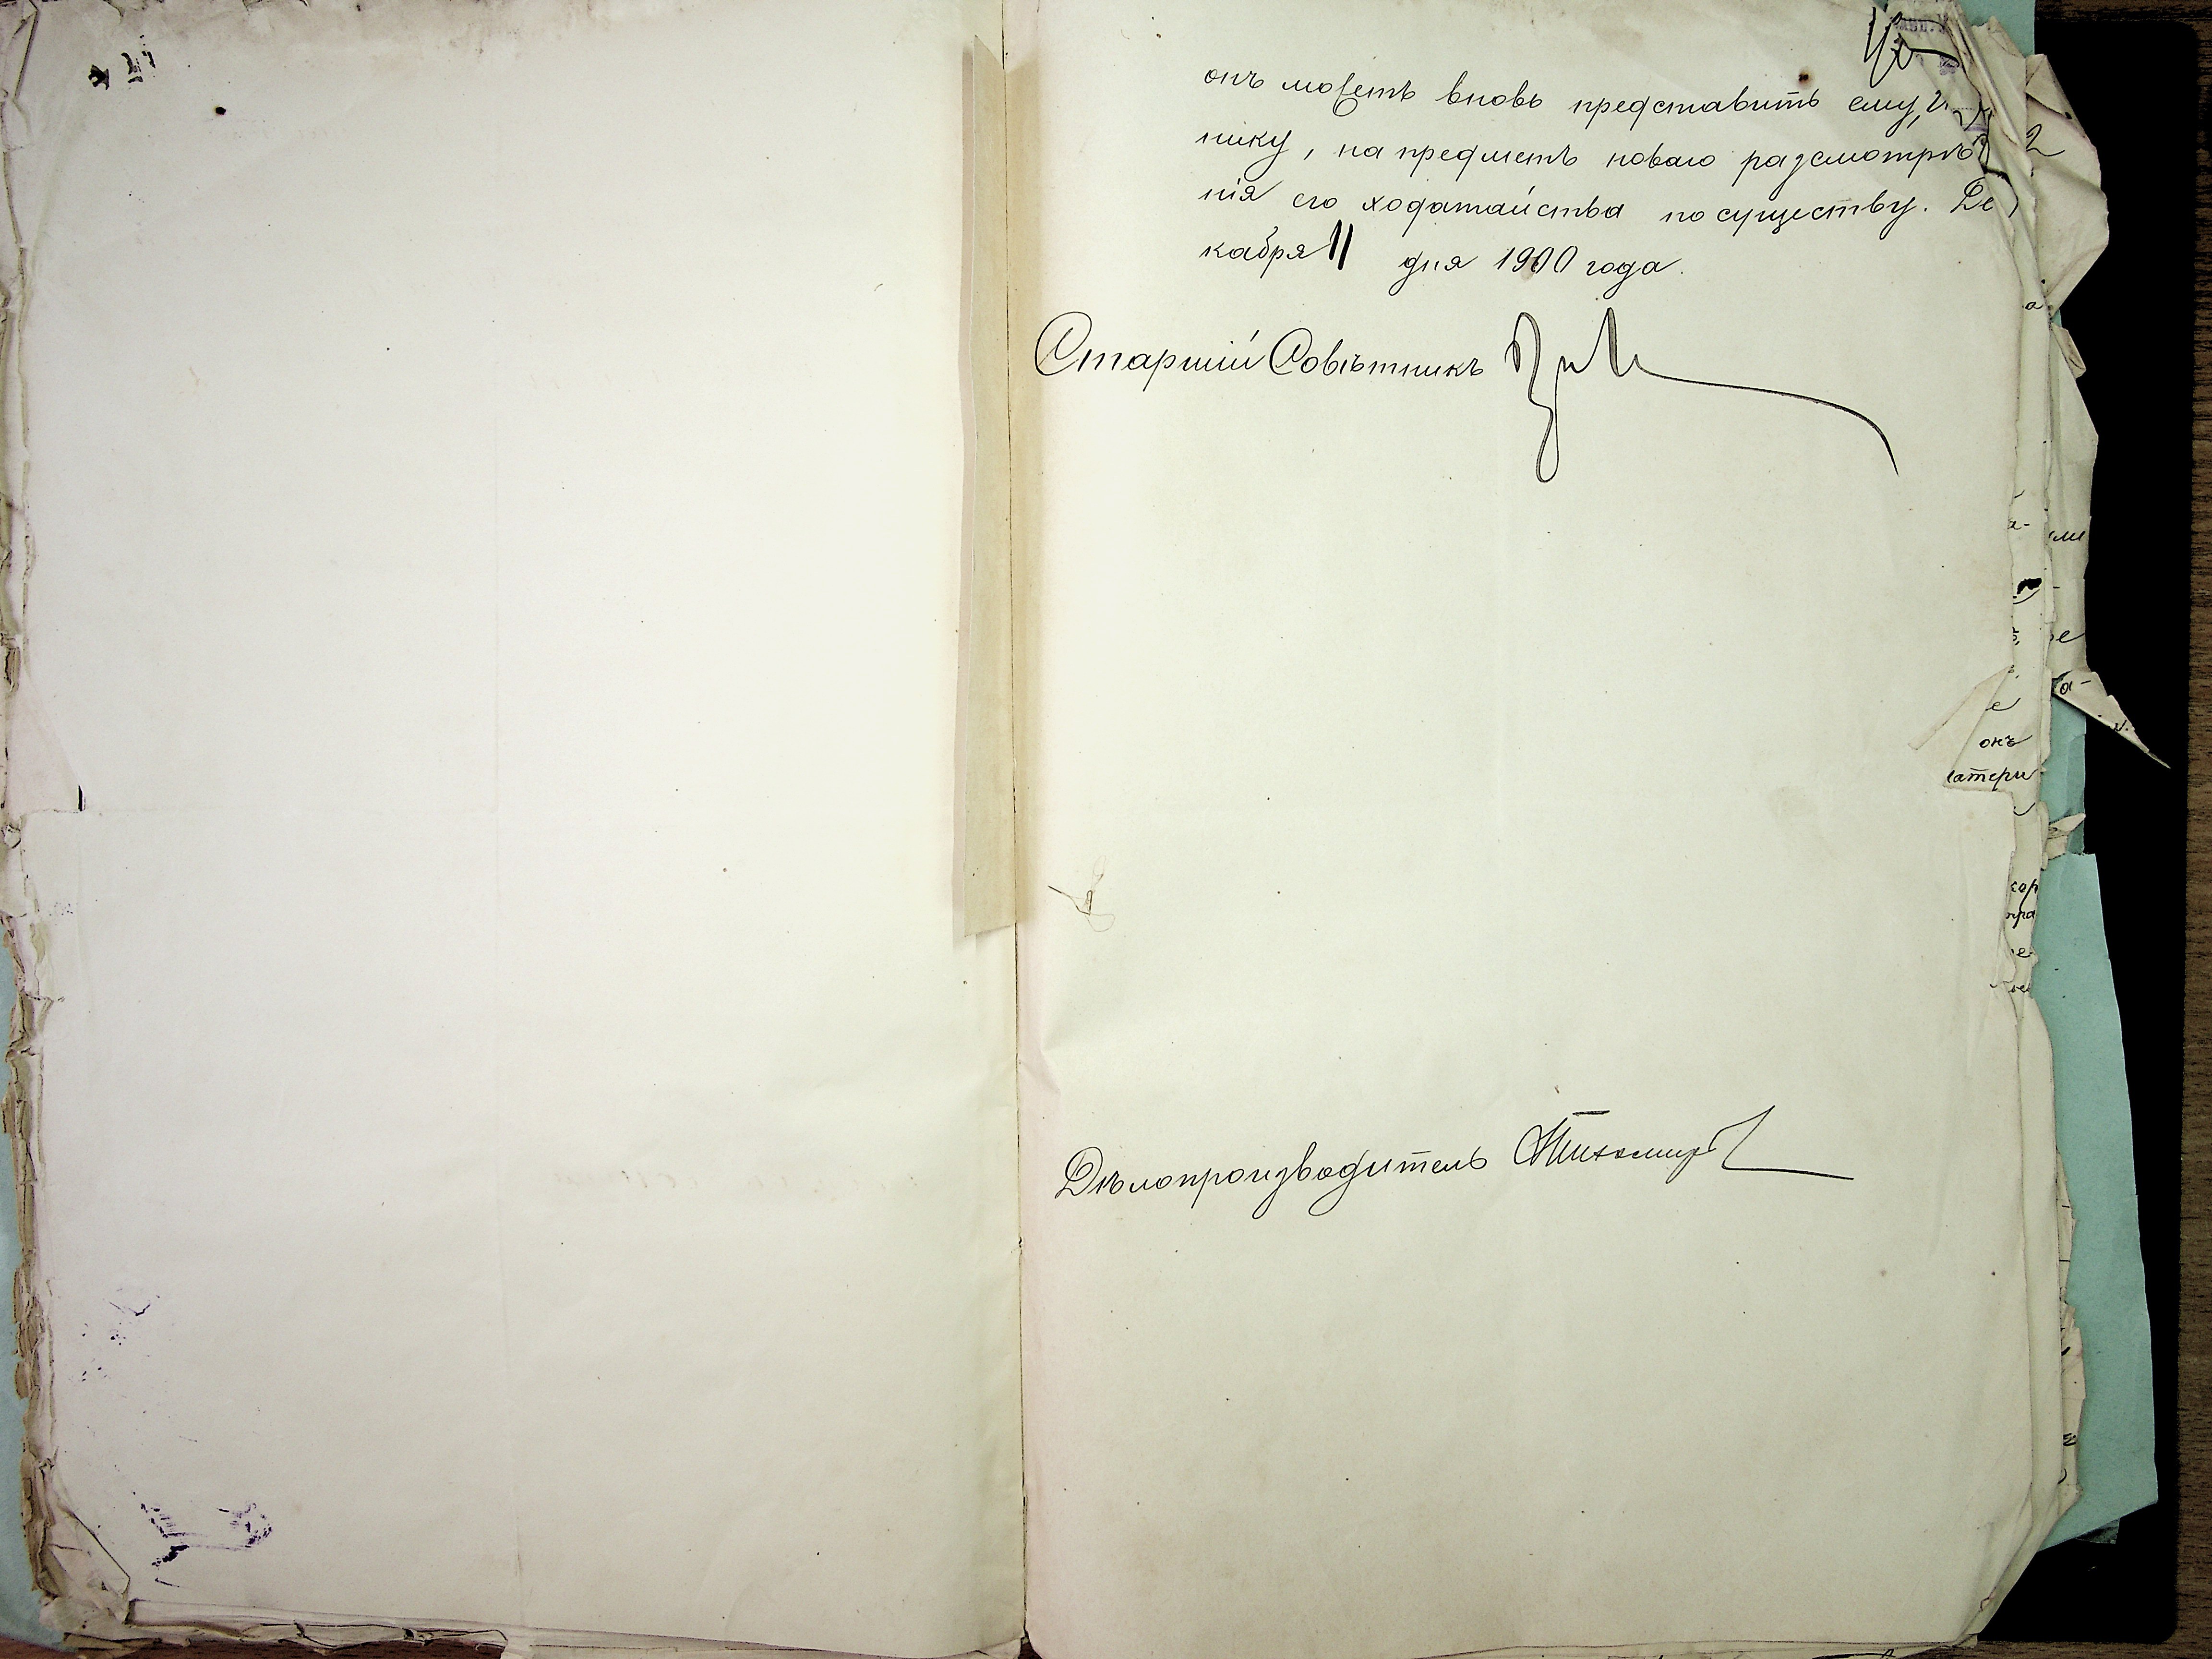 онъ можетъ вновь представить ему,
нику, на предметъ новаго разсмотрѣ
нія его ходатайства по существу. Де
кабря 11 дня 1900 года.
Старшій Совѣтникъ
Дѣлопроизводитель Тихомиров
2
а
а-
ми
е
а-
е
онъ
атери
кор
пра